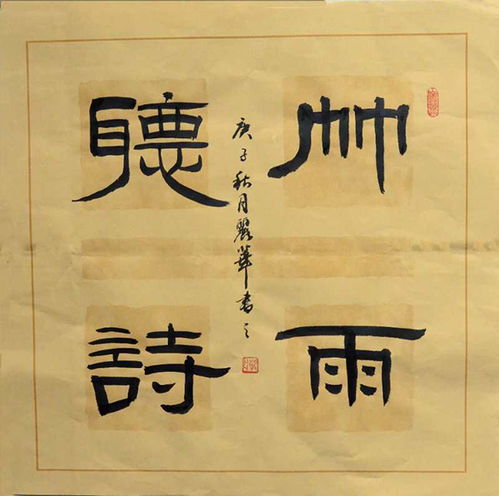 竹雨
聽詩
庚子秋月麗華書之